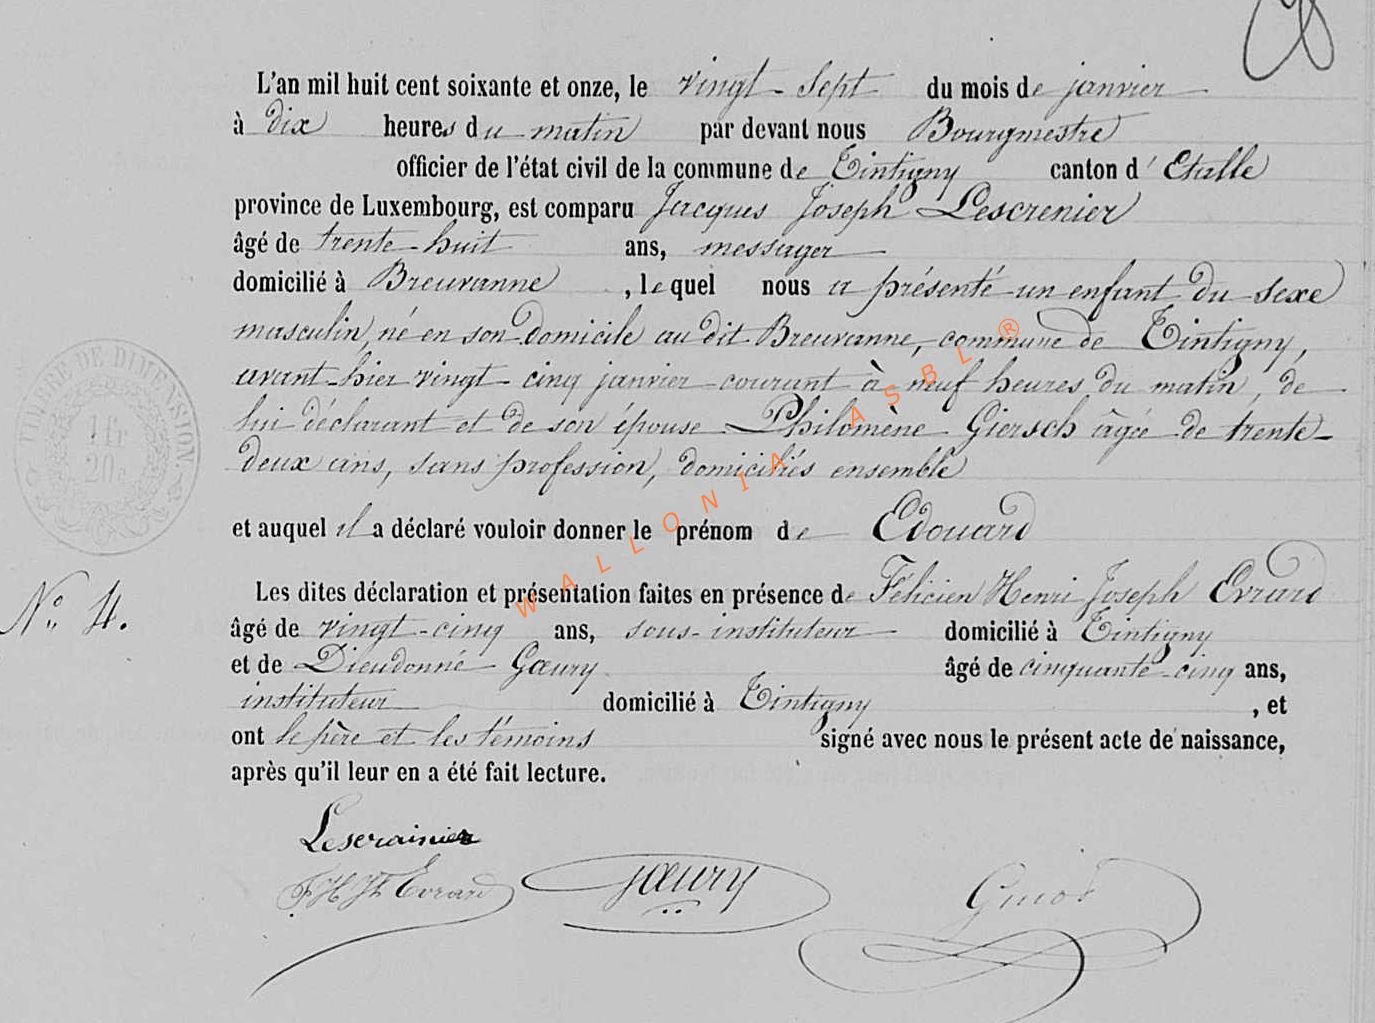 L'an mil huit cent soixante et onze, le vingt-sept du mois de janvier
à dix heures du matin par devant nous Bourgmestre
officier de l'état civil de la commune de Tintigny canton d'Etalle
province de Luxembourg, est comparu Jacques Joseph Lescrenier
âgé de trente-huit ans, messager
domicilié à Breuvanne, lequel nous a présenté un enfant du sexe
masculin, né en son domicile au dit Breuvanne, commune de Tintigny,
avant-hier vingt-cinq janvier courant à neuf heures du matin, de
lui déclarant et de son épouse Philomène Giersch âgée de trente-
deux ans, sans profession, domiciliés ensemble
et auquel il a déclaré vouloir donner le prénom de Edouard
Les dites déclaration et présentation faites en présence de Félicien Henri Joseph Evrard
âgé de vingt-cinq ans, sous-instituteur domicilié à Tintigny
et de Dieudonné Gœury âgé de cinquante-cinq ans,
instituteur domicilié à Tintigny, et
ont le père et les témoins signé avec nous le présent acte de naissance,
après qu'il leur en a été fait lecture.
N° 4.
TIMBRE DE DIMENSION.
1 fr
20c
WALLONIA ASBL ®
Lescrainier
F H J Evrard
Gœury